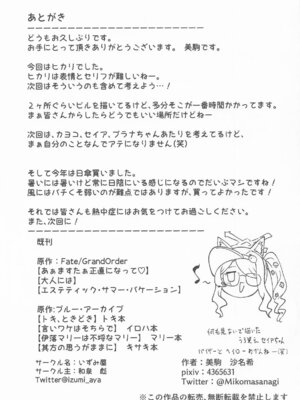 あとがき
どうもお久しぶりです。
お手にとって頂きありがとうございます。 美駒です。
今回はヒカリでした。
ヒカリは表情とセリフが難しいねー。
次回はそういうのも含めて考えよう…!
2ヶ所ぐらいビルを描いてるけど、多分そこが一番時間かかってます。
まぁ皆さんからしたらどうでもいい場所だけどねー
次回は、カヨコ、セイア、プラナちゃんあたりを考えてるけど、
まぁ自分のことなんでアテになりません(笑)
そして今年は日傘買いました。
暑いには暑いけど常に日陰にいる感じになるのでだいぶマシですね!
風にはバチくそ弱いのが難点ではありますが、買ってよかったです!
それでは皆さんも熱中症にはお気をつけてお過ごしください。
また、次回に!
既刊
原作:Fate/GrandOrder
【あぁますたぁ正直になって♡】
【大人には】
【エステティック・サマー・バケーション】
原作:ブルー・アーカイブ
【トキ、ときどき】トキ本
【言いワケはそちらで】 イロハ本
【伊落マリーは不埒なマリー】 マリー本
【其方の思うがままに】 キサキ本
サークル名:いずみ屋
サークル主:和泉 彪
Twitter@izumi_aya
何も見ないで描いた
うろ覚えセイアちゃん
作者:美駒 沙名希
pixiv:4365631
Twitter:@Mikomasanagi
※この作品の無断転載、無断複製